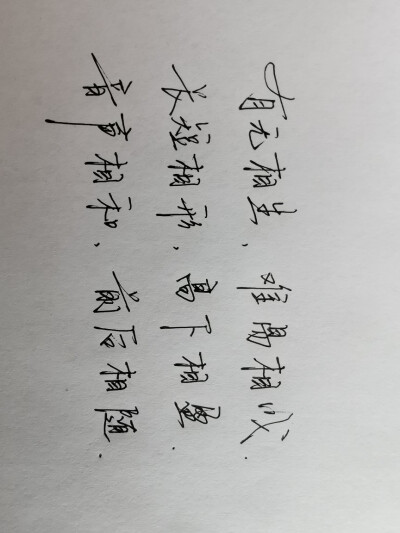 有无相生、难易相成、
长短相形、高下相盈、
音声相和、前后相随、